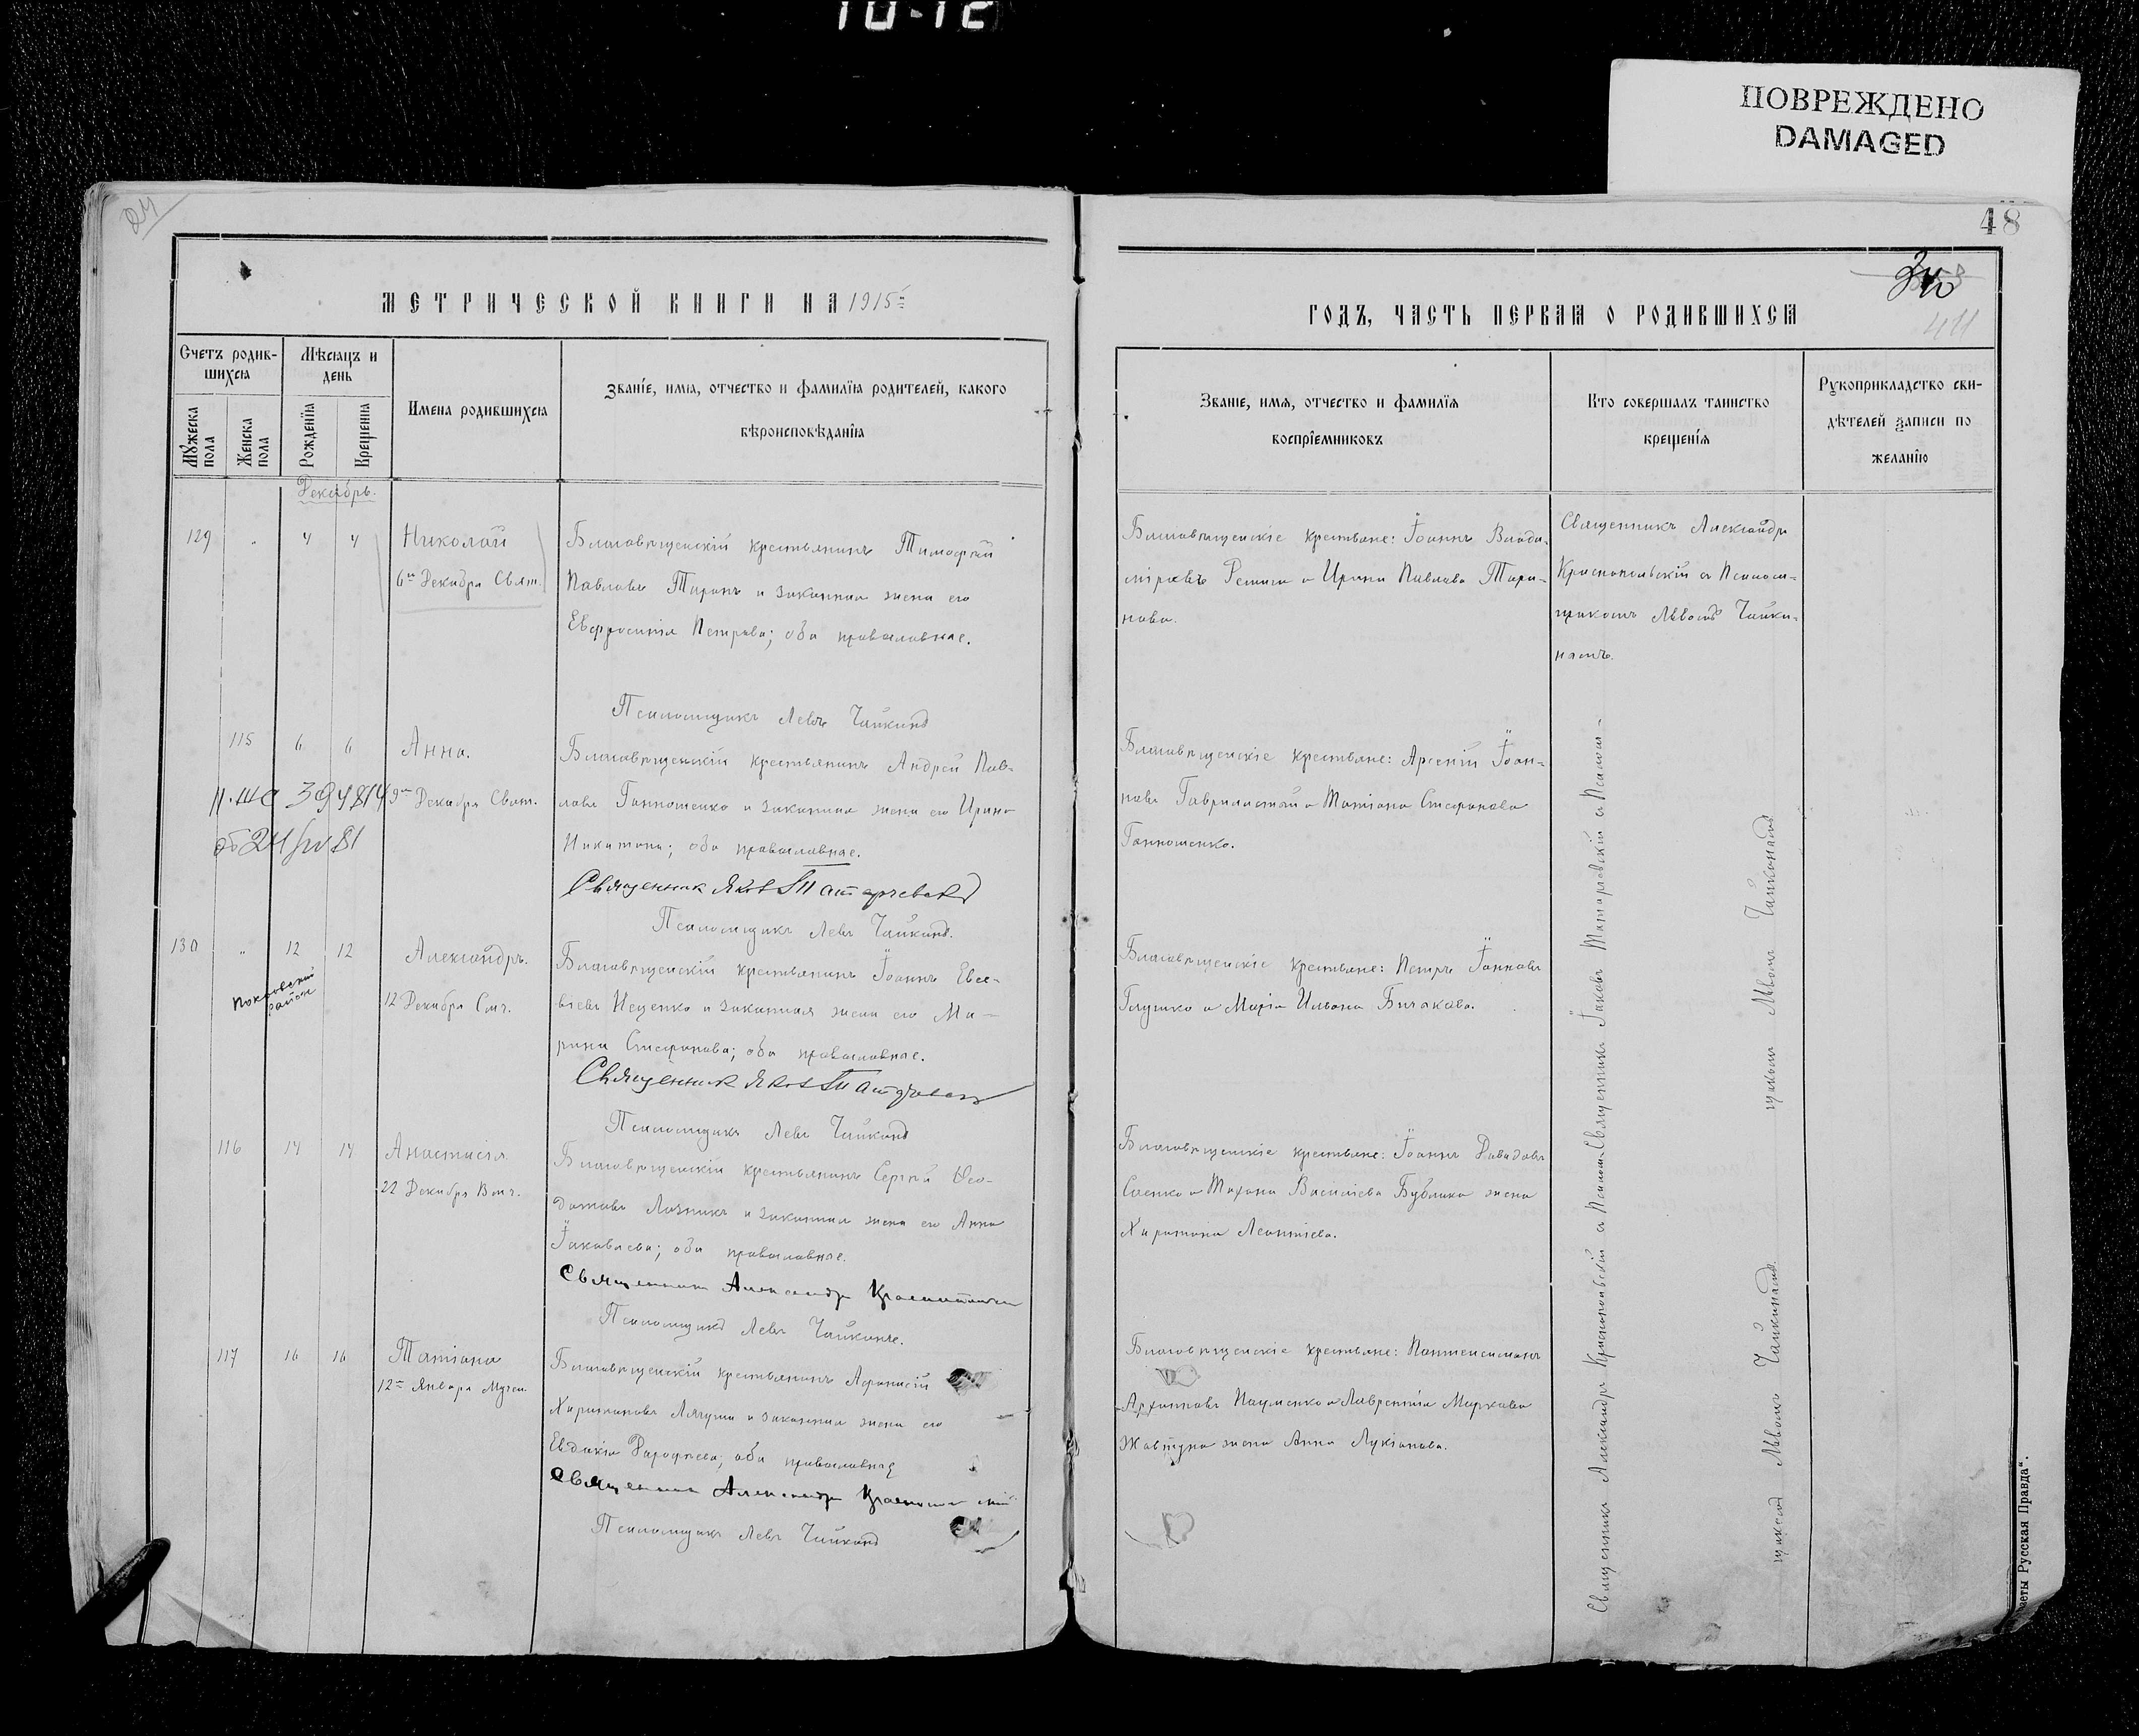 10-12
ПОВРЕЖДЕНО
DAMAGED
48
МЕТРИЧЕСКОЙ КНИГИ НА 1915
Счетъ родив-
шихся
Мѣсяцъ и
день
Имена родившихся
Званіе, имя, отчество и фамилія родителей, какого
вѣроисповѣданія
Мужеска
пола
Женска
пола
Рожденія
Крещенія
Декабрь.
129 " 4 4 Николай
6го Декабря Свят.
Благовѣщенскій крестьянинъ Тимофей
Павловъ Таранъ и законная жена его
Евфросинія Петрова; оба православные.
Псаломщикъ Левъ Чайкинъ
115 6 6 Анна.
9го Декабря Свят.
394814
Благовѣщенскій крестьянинъ Андрей Пав-
ловъ Ганношенко и законная жена его Ирина
Никитина; оба православные.
Священник Яков
Псаломщикъ Левъ Чайкинъ.
130 " 12 12 Александръ.
12 Декабря Смч.
Покровский
район
Благовѣщенскій крестьянинъ Іоаннъ Евсе-
віевъ Ищенко и законная жена его Ма-
рина Стефанова; оба православные.
Священник Яков
Псаломщикъ Левъ Чайкинъ
116 14 14 Анастасія
22 Декабря Вмч.
Благовѣщенскій крестьянинъ Сергѣй Ѳео-
датовъ Лозникъ и законная жена его Анна
Іаковлева; оба православные.
Священникъ Александръ Краснопольскій
Псаломщикъ Левъ Чайкинъ.
117 16 16 Татіана
12го Января Мучен.
Благовѣщенскій крестьянинъ Афанасій
Харитоновъ Лягуша и законная жена его
Евдокія Дорофеева; оба православные
Священникъ Александръ Краснопольскій
Псаломщикъ Левъ Чайкинъ
ГОДЪ, ЧАСТЬ ПЕРВАЯ О РОДИВШИХСЯ
411
Званіе, имя, отчество и фамилія
воспріемниковъ
Кто совершалъ таинство
крещенія
Рукоприкладство сви-
дѣтелей записи по
желанію
Благовѣщенскіе крестьяне: Іоаннъ Влади-
міровъ Репига и Ирина Павлова Тара-
нова.
Священникъ Александръ
Краснопольскій съ Псалом-
щикомъ Львомъ Чайки-
намъ.
Благовѣщенскіе крестьяне: Арсеній Іоан-
новъ и Татіана Стефанова
Ганношенко.
Благовѣщенскіе крестьяне: Петръ Іоанновъ
Глушко и Марія Ильина Бичакова.
Благовѣщенскіе крестьяне: Іоаннъ Давидовъ
Саенко и Харитона Леонтіева.
Благовѣщенскіе крестьяне: Пантелеимонъ
Архиповъ Науменко и Лаврентія Маркова
Жовтуна жена Анна Лукіанова.
Священникъ Іаковъ съ Псалом-
щикомъ Львомъ Чайкинымъ
Священникъ Александръ Краснопольскій съ Псалом-
щикомъ Львомъ Чайкинымъ
Русская Правда".